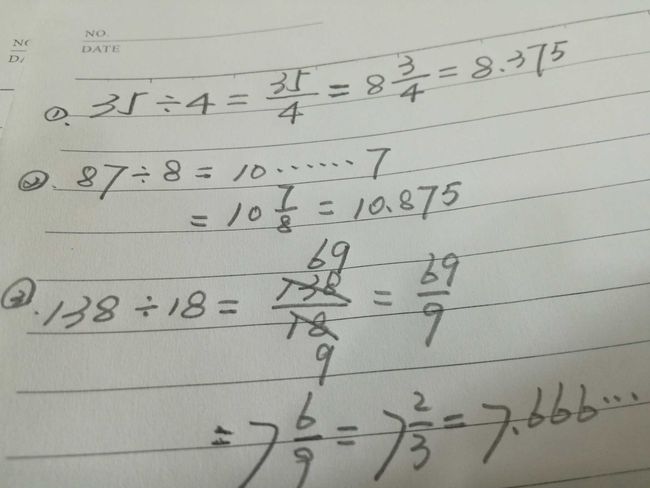 NO.
DATE
① 35÷4 = 35/4 = 8 3/4 = 8.375
② 87÷8 = 10……7
= 10 7/8 = 10.875
③ 138÷18 = 138/18 = 69/9
69
9
= 7 6/9 = 7 2/3 = 7.666…